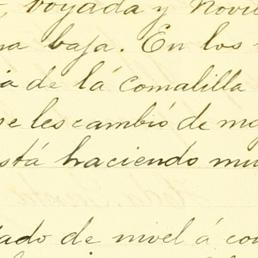 , voyada y Novi
na baja. En los
a de lá comalilla
se les cambió de m
está haciendo mu
ado de nivel á co